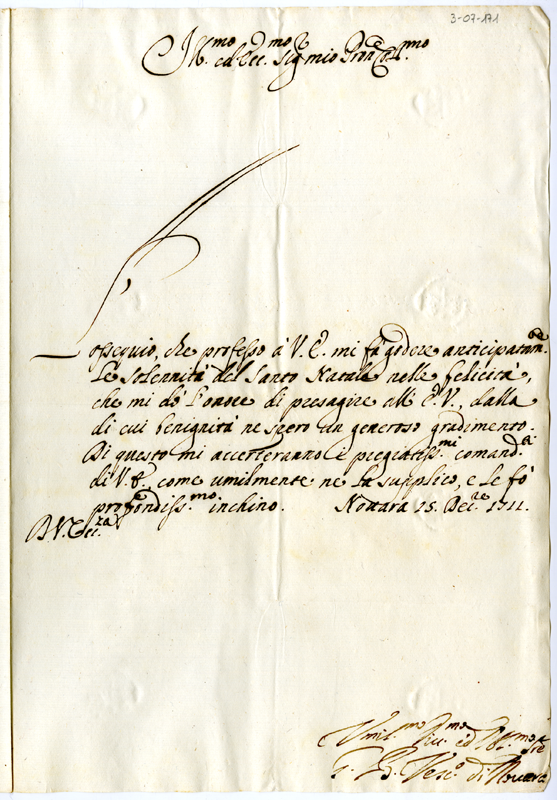 3-07-171
Ill.mo ed Ecc.mo Sig.r mio Pron Col.mo
L'ossequio, che professo à V. E. mi fà godere anticipatam.te
Le solennità del Santo Natale nelle felicità,
che mi dò l'onore di presagire all' E. V. dalla
di cui benignità ne spero un generoso gradimento.
Di questo mi accerteranno i pregiatiss.mi comand.ti
di V. E. come umilmente ne la supplico, e le fò
profondiss.mo inchino. Nouara 15. Dec.re 1711.
B. V. Ecc.za
Umil.mo Div.mo ed Obl.mo Ser.re
G. B. Vesc.o di Nouara